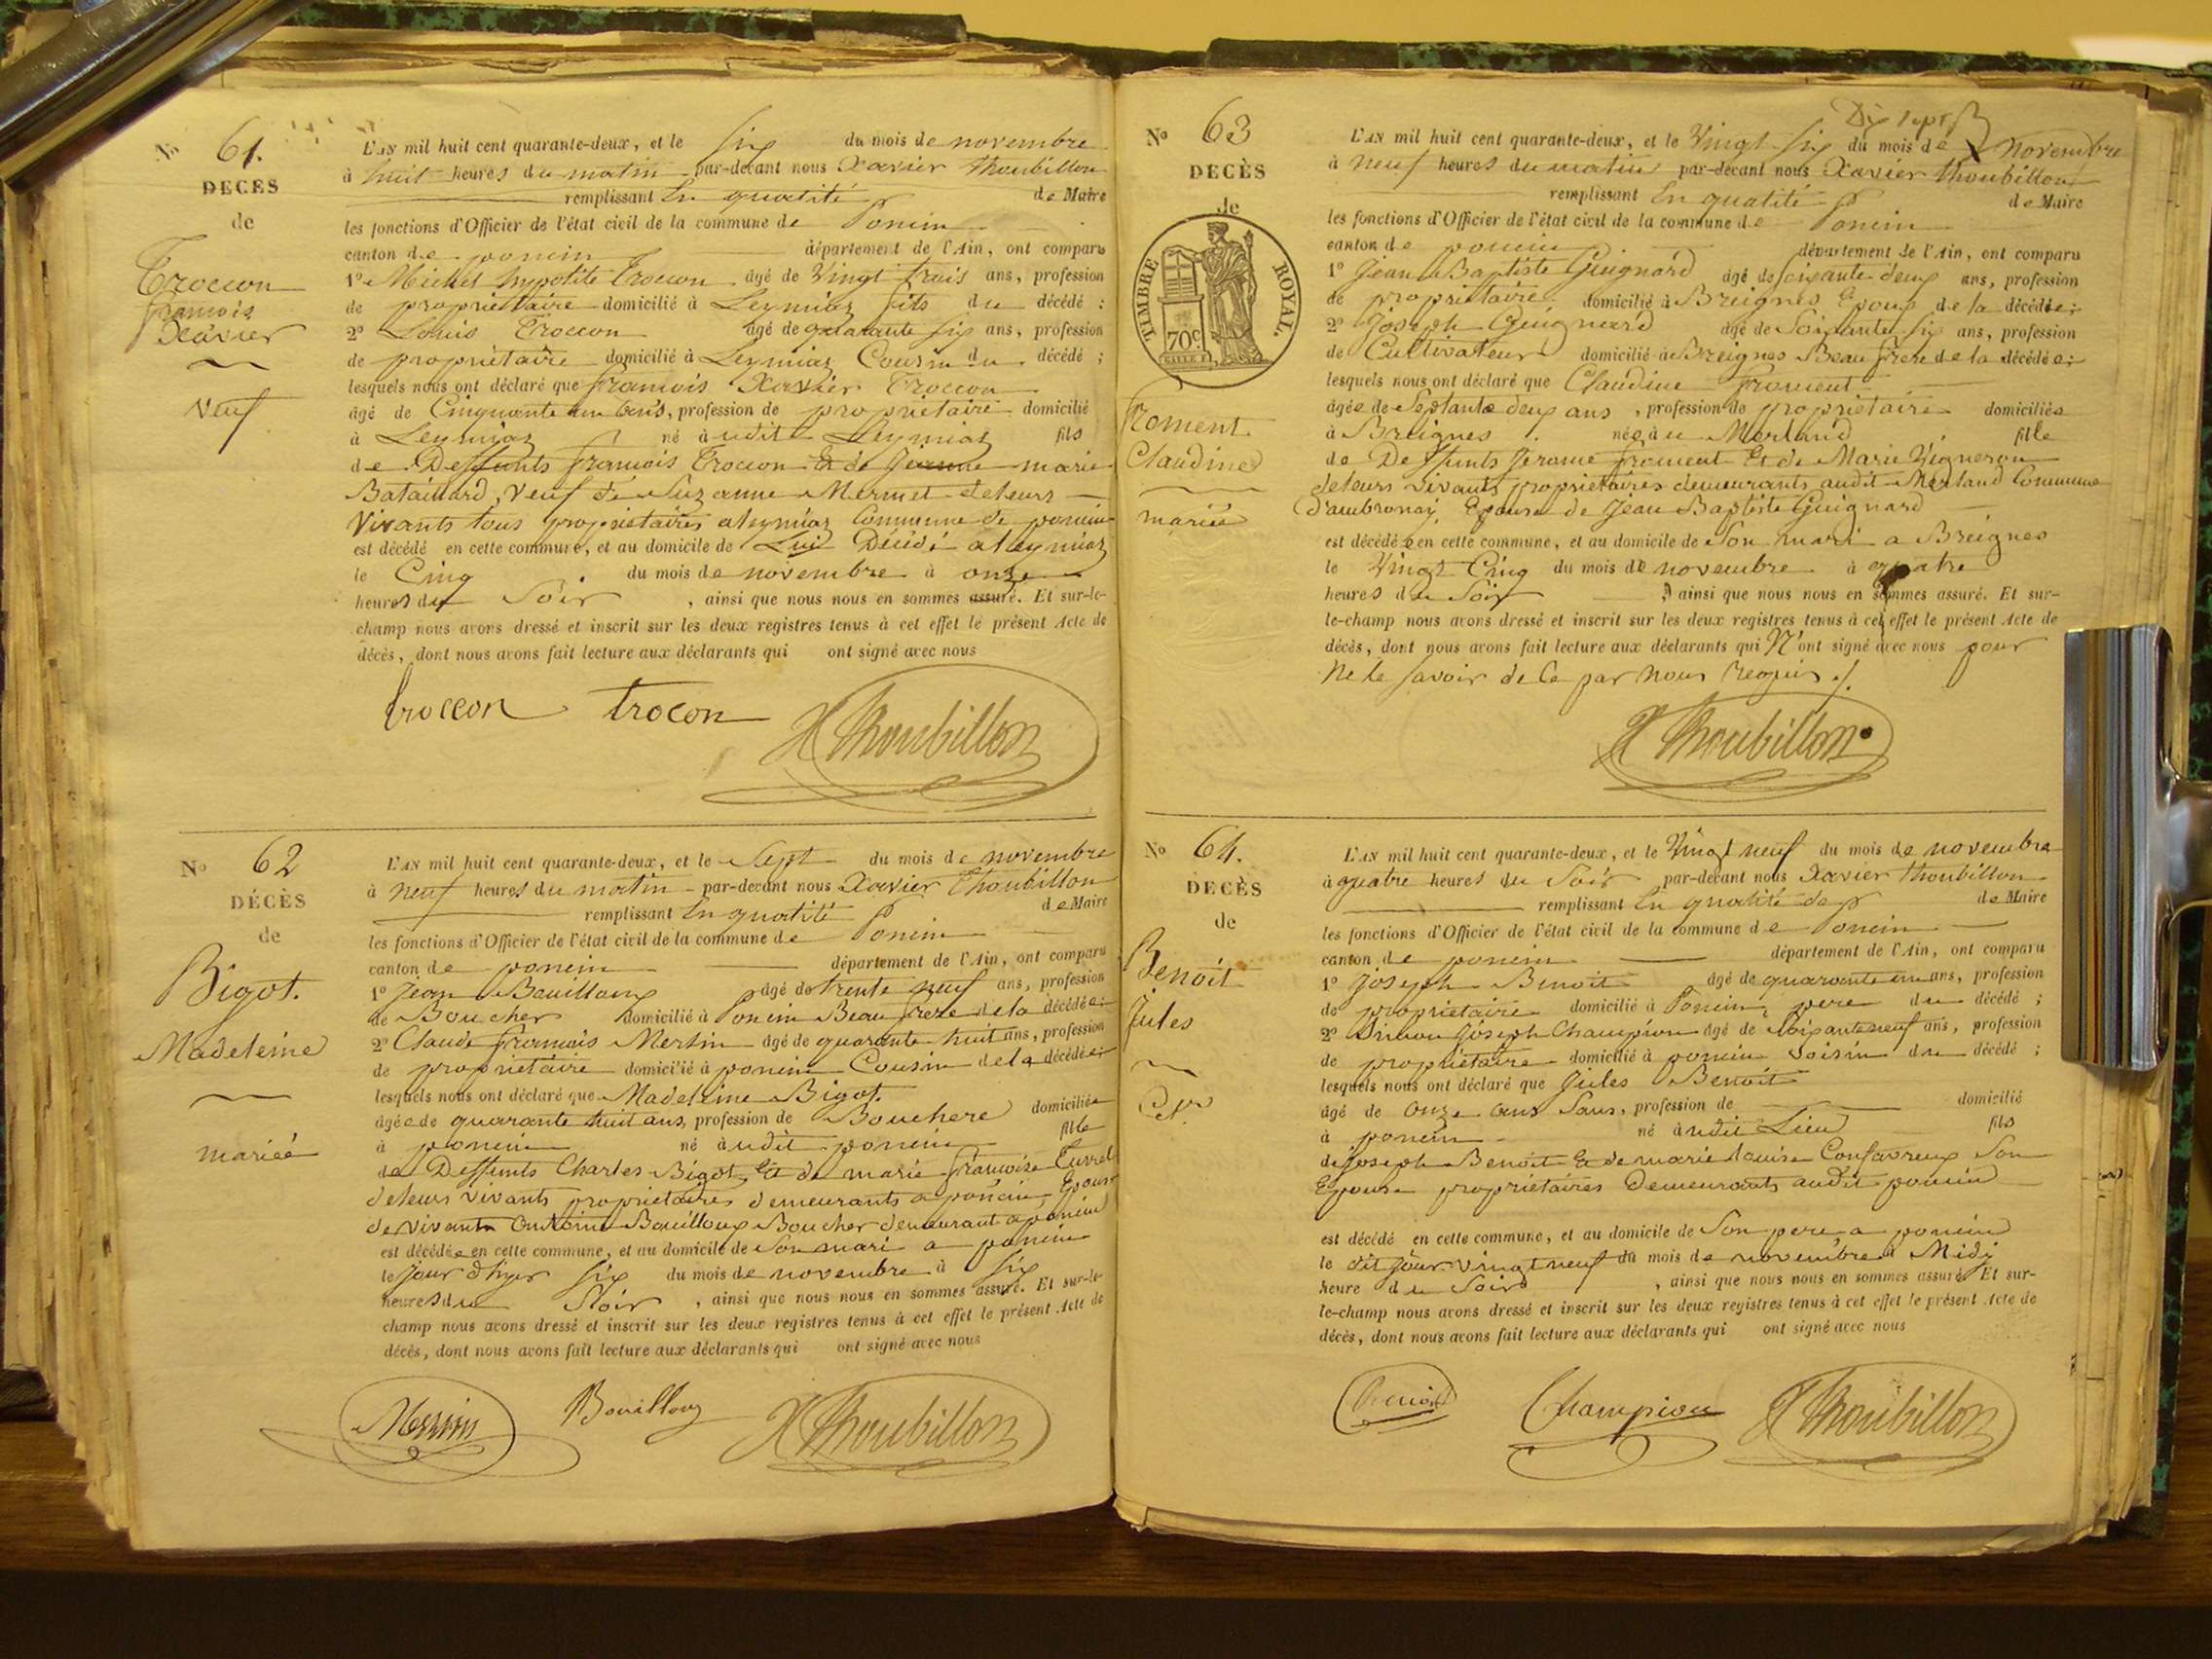 No 61.
DECÈS
de
Troccon
francois
Xavier
Veuf
L'AN mil huit cent quarante-deux, et le six du mois de novembre
à huit heures du matin par-devant nous Xavier Thoubillon
remplissant En qualité de Maire
les fonctions d'Officier de l'état civil de la commune de Poncin
canton de poncin département de l'Ain, ont comparu
1o Michel hypolite Troccon âgé de Vingt trois ans, profession
de propriétaire domicilié à Leymiaz fils du décédé ;
2o Louis Troccon âgé de quarante six ans, profession
de propriétaire domicilié à Leymiaz Cousin du décédé ;
lesquels nous ont déclaré que francois Xavier Troccon
âgé de Cinquante un ans, profession de propriétaire domicilié
à Leymiaz né à udit Leymiaz fils
de Deffunts francois Troccon Et de Jeanne marie
Bataillard, Veuf de Suzanne Mermet deleurs
Vivants tous propriétaires a leymiaz Commune de poncin
est décédé en cette commune, et au domicile de Lui Décédé a leymiaz
le Cinq du mois de novembre à onze
heures du Soir, ainsi que nous nous en sommes assuré. Et sur-le-
champ nous avons dressé et inscrit sur les deux registres tenus à cet effet le présent Acte de
décès, dont nous avons fait lecture aux déclarants qui ont signé avec nous
troccon trocon X Thoubillon
No 62
DÉCÈS
de
Bigot.
Madeleine
mariée
L'AN mil huit cent quarante-deux, et le Sept du mois de novembre
à neuf heures du matin par-devant nous Xavier Thoubillon
remplissant En qualité de Maire
les fonctions d'Officier de l'état civil de la commune de Poncin
canton de poncin département de l'Ain, ont comparu
1o Jean Bouilloux âgé de trente neuf ans, profession
de Boucher domicilié à Poncin Beau frere de la décédée ;
2o Claude francois Mersin âgé de quarante huit ans, profession
de propriétaire domicilié à poncin Cousin de la décédée ;
lesquels nous ont déclaré que Madeleine Bigot.
âgée de quarante huit ans, profession de Bouchere domiciliée
à poncin né à udit poncin fille
de Deffunts Charles Bigot, Et de marie francoise
deleurs Vivants propriétaires demeurants a poncin Epouse
de vivant Antoine Bouilloux Boucher demeurant a poncin
est décédée en cette commune, et au domicile de Son mari a poncin
le Jour d'hyer six du mois de novembre à six
heures du Soir, ainsi que nous nous en sommes assuré. Et sur-le-
champ nous avons dressé et inscrit sur les deux registres tenus à cet effet le présent Acte de
décès, dont nous avons fait lecture aux déclarants qui ont signé avec nous
Mersin Bouilloux X Thoubillon
No 63
DECÈS
de
TIMBRE ROYAL.
70c
froment
Claudine
mariée
Dix sept
L'AN mil huit cent quarante-deux, et le Vingt six du mois de novembre
à neuf heures du matin par-devant nous Xavier Thoubillon
remplissant En qualité de Maire
les fonctions d'Officier de l'état civil de la commune de Poncin
canton de poncin département de l'Ain, ont comparu
1o Jean Baptiste Guignard âgé de soixante deux ans, profession
de propriétaire domicilié à Breignes Epoux de la décédée ;
2o Joseph Guignard âgé de Soixante six ans, profession
de Cultivateur domicilié à Breignes Beau frere de la décédée ;
lesquels nous ont déclaré que Claudine froment
âgée de Septante deux ans, profession de propriétaire domiciliée
à Breignes née à u Merland fille
de Deffunts Jerome froment Et de Marie Vigneron
deleurs vivants propriétaires demeurants audit Merland Commune
d'ambronay, Epouse de Jean Baptiste Guignard
est décédée en cette commune, et au domicile de Son mari a Breignes
le Vingt Cinq du mois de novembre à quatre
heures du Soir, ainsi que nous nous en sommes assuré. Et sur-
le-champ nous avons dressé et inscrit sur les deux registres tenus à cet effet le présent Acte de
décès, dont nous avons fait lecture aux déclarants qui N'ont signé avec nous pour
ne le savoir de ce par nous requis ./.
X Thoubillon
No 64.
DECÈS
de
Benoit
Jules
L'AN mil huit cent quarante-deux, et le Vingt neuf du mois de novembre
à quatre heures du Soir par-devant nous Xavier Thoubillon
remplissant En qualité de de Maire
les fonctions d'Officier de l'état civil de la commune de Poncin
canton de poncin département de l'Ain, ont comparu
1o Joseph Benoit âgé de quarante un ans, profession
de propriétaire domicilié à Poncin, pere du décédé ;
2o Joseph Champion âgé de Soixante neuf ans, profession
de propriétaire domicilié à poncin voisin du décédé ;
lesquels nous ont déclaré que Jules Benoit
âgé de onze ans Sans, profession de domicilié
à poncin né à udit Lieu fils
de Joseph Benoit Et de marie Louise Confavreux Son
Epouse propriétaires Demeurants audit poncin
est décédé en cette commune, et au domicile de Son pere a poncin
le dit Jour vingt neuf du mois de novembre à Midy
heure du Soir, ainsi que nous nous en sommes assuré. Et sur-
le-champ nous avons dressé et inscrit sur les deux registres tenus à cet effet le présent Acte de
décès, dont nous avons fait lecture aux déclarants qui ont signé avec nous
Benoit Champion X Thoubillon